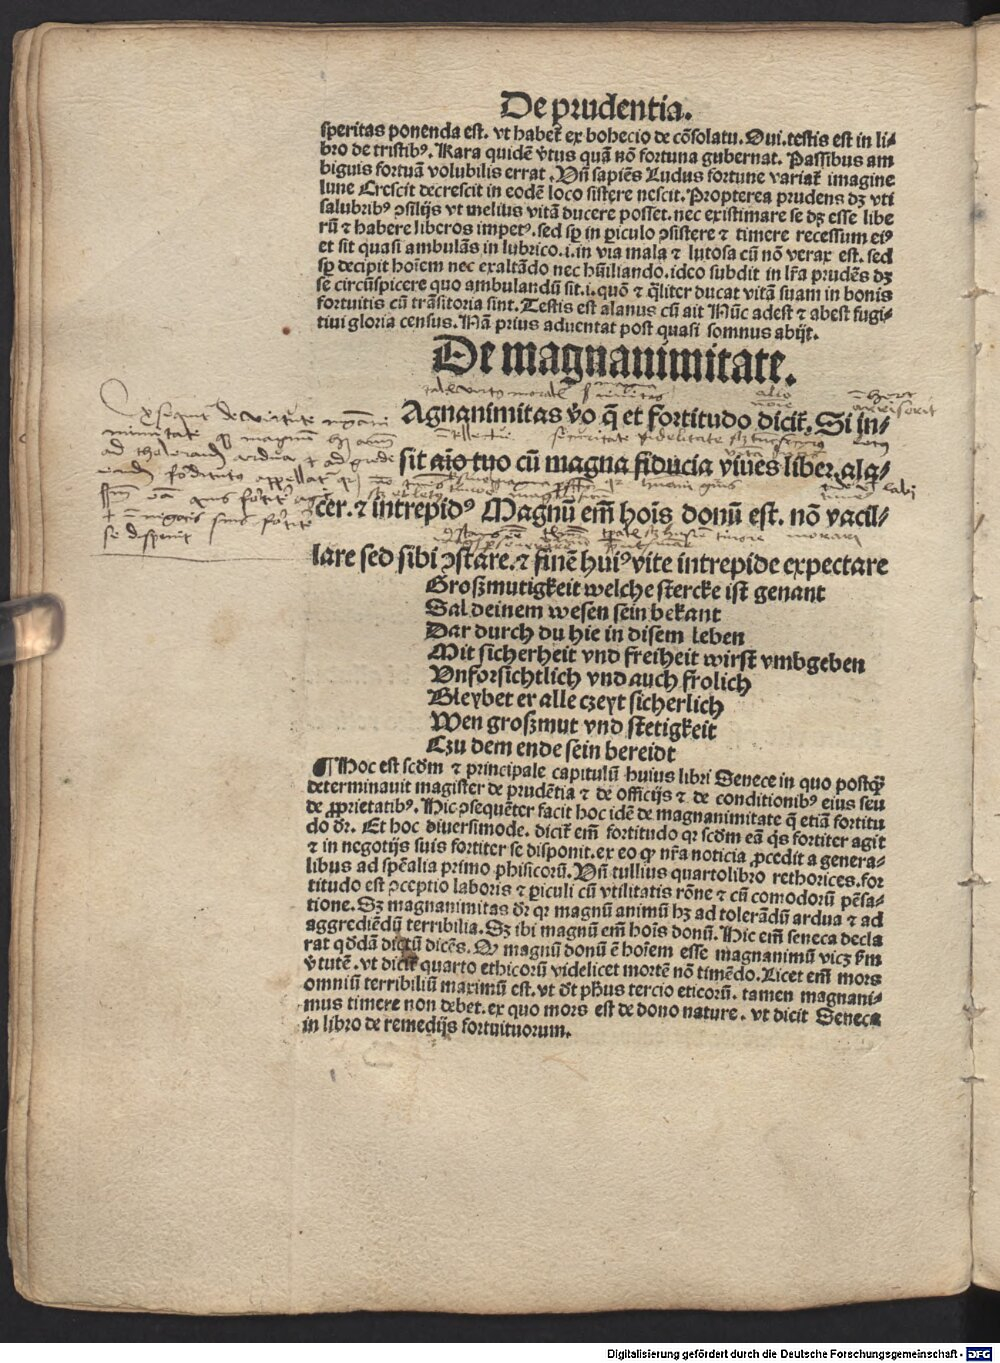 De prudentia.
speritas ponenda est. vt habet᷑ ex bohecio de cõsolatu. Oui. testis est in li⸗
bro de tristibꝰ. Rara quidẽ v̾tus quã nõ fortuna gubernat. Passibus am
biguis fortuã volubilis errat. Vñ sapiẽs Ludus fortune variat᷑ imagine
lune Crescit decrescit in eodẽ loco sistere nescit. Propterea prudens dꝫ vti
salubribꝰ ꝯsilijs vt melius vitã ducere posset. nec existimare se dꝫ esse libe
rũ ⁊ habere liberos impetꝰ. sed sꝑ in ꝑiculo ꝯsistere ⁊ timere recessum eiꝰ
et sit quasi ambulãs in lubrico .i. in via mala ⁊ lutosa cũ nõ verax est. sed
sꝑ decipit hoĩem nec exaltãdo nec hũiliando. ideo subdit in lr̃a prudẽs dꝫ
se circũspicere quo ambulandũ sit .i. quõ ⁊ q̃liter ducat vitã suam in bonis
fortuitis cũ trãsitoria sint. Testis est alanus cũ ait Nũc adest ⁊ abest fugi⸗
tiui gloria census. Nã prius aduentat post quasi somnus abijt.
De magnanimitate.
Agnanimitas v̾o q̃ et fortitudo dicit᷑. Si in⸗
sit aĩo tuo cũ magna fiducia viues liber. ala⸗
cer. ⁊ intrepidꝰ Magnũ em̃ hoĩs donũ est. nõ vacil⸗
lare sed sibi ꝯstare. ⁊ finẽ huiꝰ vite intrepide expectare
Großmutigkeit welche stercke ist genant
Sal deinem wesen sein bekant
Dar durch du hie in disem leben
Mit sicherheit vnd freiheit wirst vmbgeben
Vnforsichtlich vnd auch frolich
Bleybet er alle czeyt sicherlich
Wen großmut vnd stetigkeit
Czu dem ende sein bereidt
¶ Hoc est scd̃m ⁊ principale capitulũ huius libri Senece in quo postq̃
determinauit magister de prudẽtia ⁊ de officijs ⁊ de conditionibꝰ eius seu
de ꝓprietatibꝰ. Hic ꝯsequẽter facit hoc idẽ de magnanimitate q̃ etiã fortitu
do dr̃. Et hoc diuersimode. dicit᷑ em̃ fortitudo qꝛ scd̃m eã q̃s fortiter agit
⁊ in negotijs suis fortiter se disponit. ex eo ꝙ nr̃a noticia ꝓcedit a genera⸗
libus ad spẽalia primo phisicorũ. Vñ tullius quartolibro rethorices. for
titudo est ꝯceptio laboris ⁊ ꝑiculi cũ vtilitatis rõne ⁊ cũ comodorũ pẽsa⸗
tione. Sꝫ magnanimitas dr̃ qꝛ magnũ animũ hꝫ ad tolerãdũ ardua ⁊ ad
aggrediẽdũ terribilia. Sꝫ ibi magnũ em̃ hoĩs donũ. Hic em̃ seneca decla
rat qd̃dã dictũ dicẽs. Q magnũ donũ ẽ hoĩem esse magnanimũ vicꝫ ẜm
v̾tutẽ. vt dicit᷑ quarto ethicorũ videlicet mortẽ nõ timẽdo. Licet em̃ mors
omniũ terribiliũ maximũ est. vt dt̃ ph̃us tercio eticorũ. tamen magnani⸗
mus timere non debet. ex quo mors est de dono nature. vt dicit Seneca
in libro de remedijs fortuituorum.
Digitalisierung gefördert durch die Deutsche Forschungsgemeinschaft - DFG